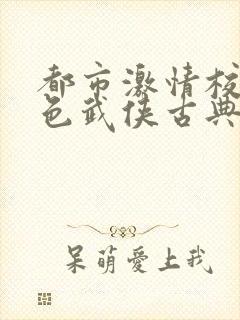 都市激情校
色武侠古典
呆萌爱上我